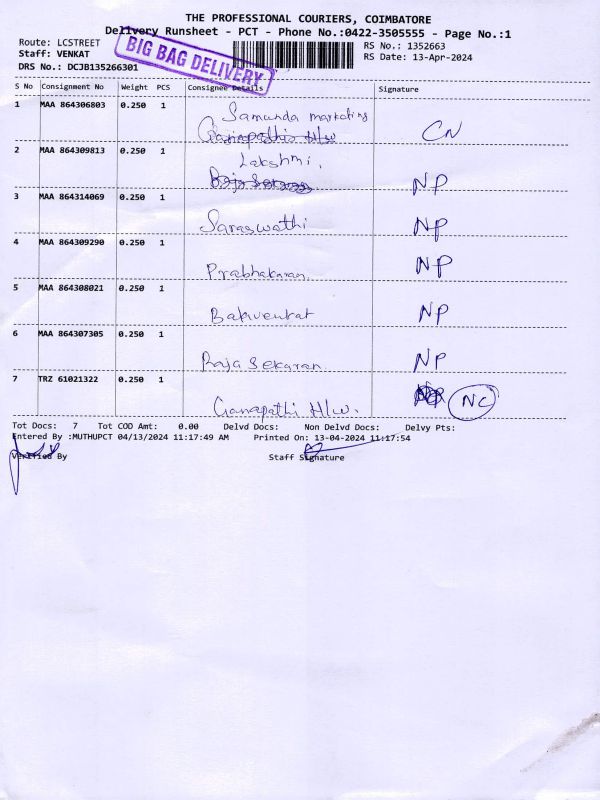 THE PROFESSIONAL COURIERS, COIMBATORE
Delivery Runsheet - PCT - Phone No.:0422-3505555 - Page No.:1
Route: LCSTREET
BIG BAG DELIVERY
RS No.: 1352663
Staff: VENKAT
RS Date: 13-Apr-2024
DRS No.: DCJB135266301
S No Consignment No Weight PCS Consignee Details Signature
1 MAA 864306803 0.250 1 Samunda marketing
Ganapathi H/w CN
2 MAA 864309813 0.250 1 Lakshmi,
Raja Sekaran NP
3 MAA 864314069 0.250 1 Saraswathi NP
4 MAA 864309290 0.250 1 Prabhakaran NP
5 MAA 864308021 0.250 1 Balivenkat NP
6 MAA 864307305 0.250 1 Raja Sekaran NP
7 TRZ 61021322 0.250 1 Ganapathi H/w. NP NC
Tot Docs: 7 Tot COD Amt: 0.00 Delvd Docs: Non Delvd Docs: Delvy Pts:
Entered By :MUTHUPCT 04/13/2024 11:17:49 AM Printed On: 13-04-2024 11:17:54
Verified By Staff Signature